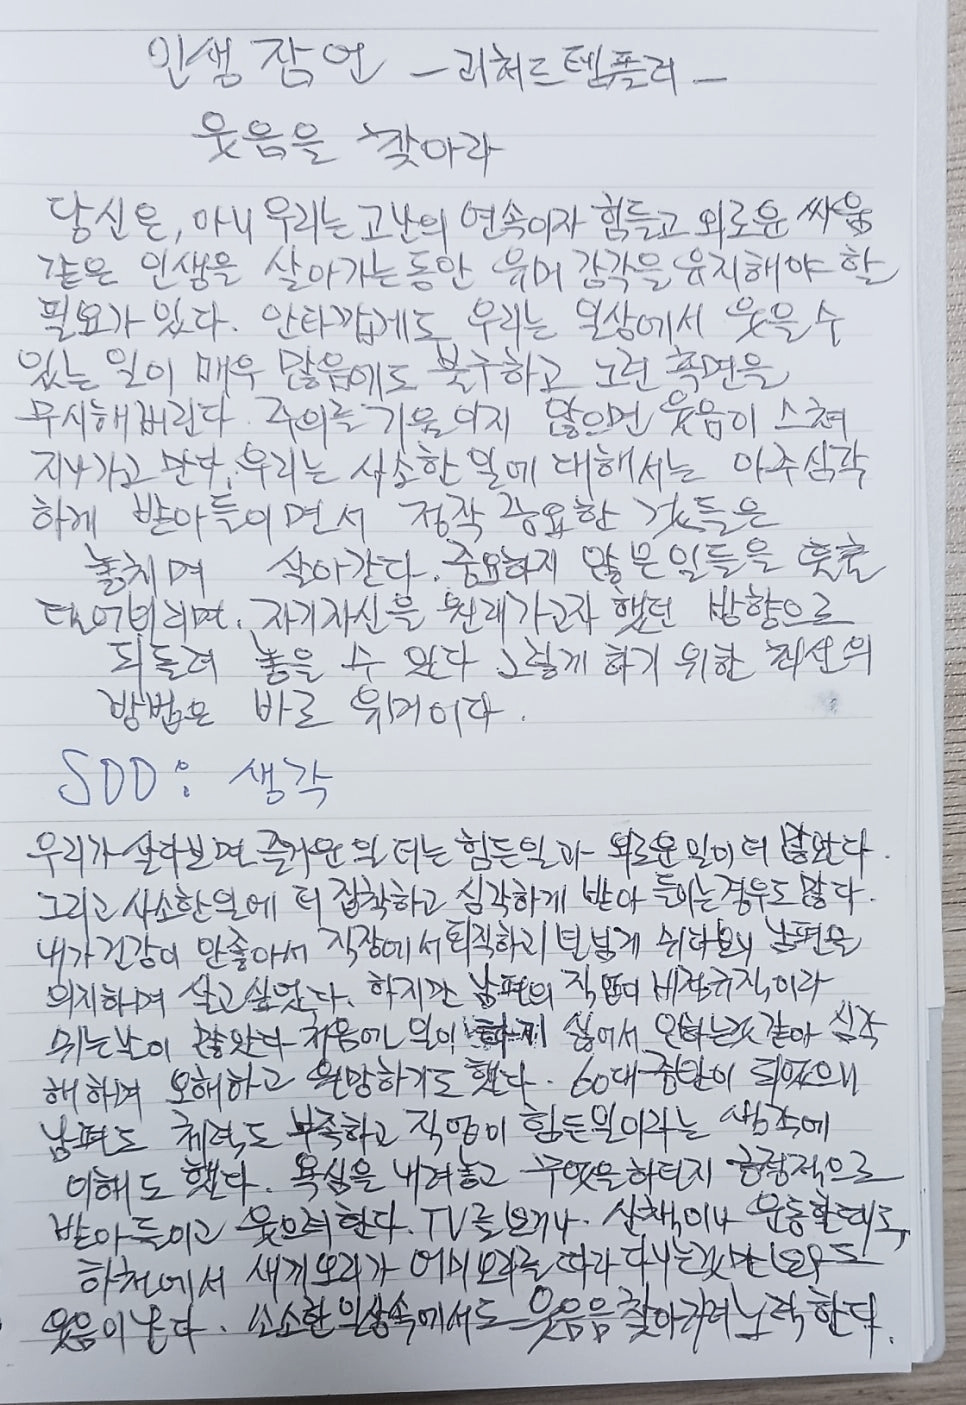 인생 잠언 - 리처드 템플러 -
웃음을 찾아라
당신은, 아니 우리는 고난의 연속이자 힘들고 외로운 싸움
같은 인생을 살아가는 동안 유머 감각을 유지해야 할
필요가 있다. 안타깝게도 우리는 일상에서 웃을 수
있는 일이 매우 많음에도 불구하고 그런 측면을
무시해버린다. 주의를 기울이지 않으면 웃음이 스쳐
지나가고 만다. 우리는 사소한 일에 대해서는 아주 심각
하게 받아들이면서 정작 중요한 것들은
놓치며 살아간다. 중요하지 않은 일들을 훌훌
털어버리면. 자기자신을 원래 가고자 했던 방향으로
되돌려 놓을 수 있다 그렇게 하기 위한 최선의
방법은 바로 유머이다.
SDD: 생각
우리가 살다보면 즐거운 일 더는 힘든일과 외로운일이 더 많았다.
그리고 사소한일에 더 집착하고 심각하게 받아 들이는경우도 많다.
내가 건강이 안좋아서 직장에서 퇴직하고 쉬다보니 남편을
의지하며 살고싶었다. 하지만 남편의 직업이 비정규직이라
쉬는날이 많았다 처음에 일이 하기 싫어서 안하는것 같아 심각
해하며 오해하고 원망하기도 했다. 60대 중반이 되었으니
남편도 체력도 부족하고 직업이 힘든일이라는 생각에
이해도 했다. 욕심을 내려놓고 무엇을하던지 긍정적으로
받아들이고 웃으려한다. TV를 보거나. 산책이나 운동할때도
하천에서 새끼오리가 어미오리를 따라다니는것만 보아도
웃음이 난다. 소소한 일상속에서도 웃음을 찾아가려 노력한다.